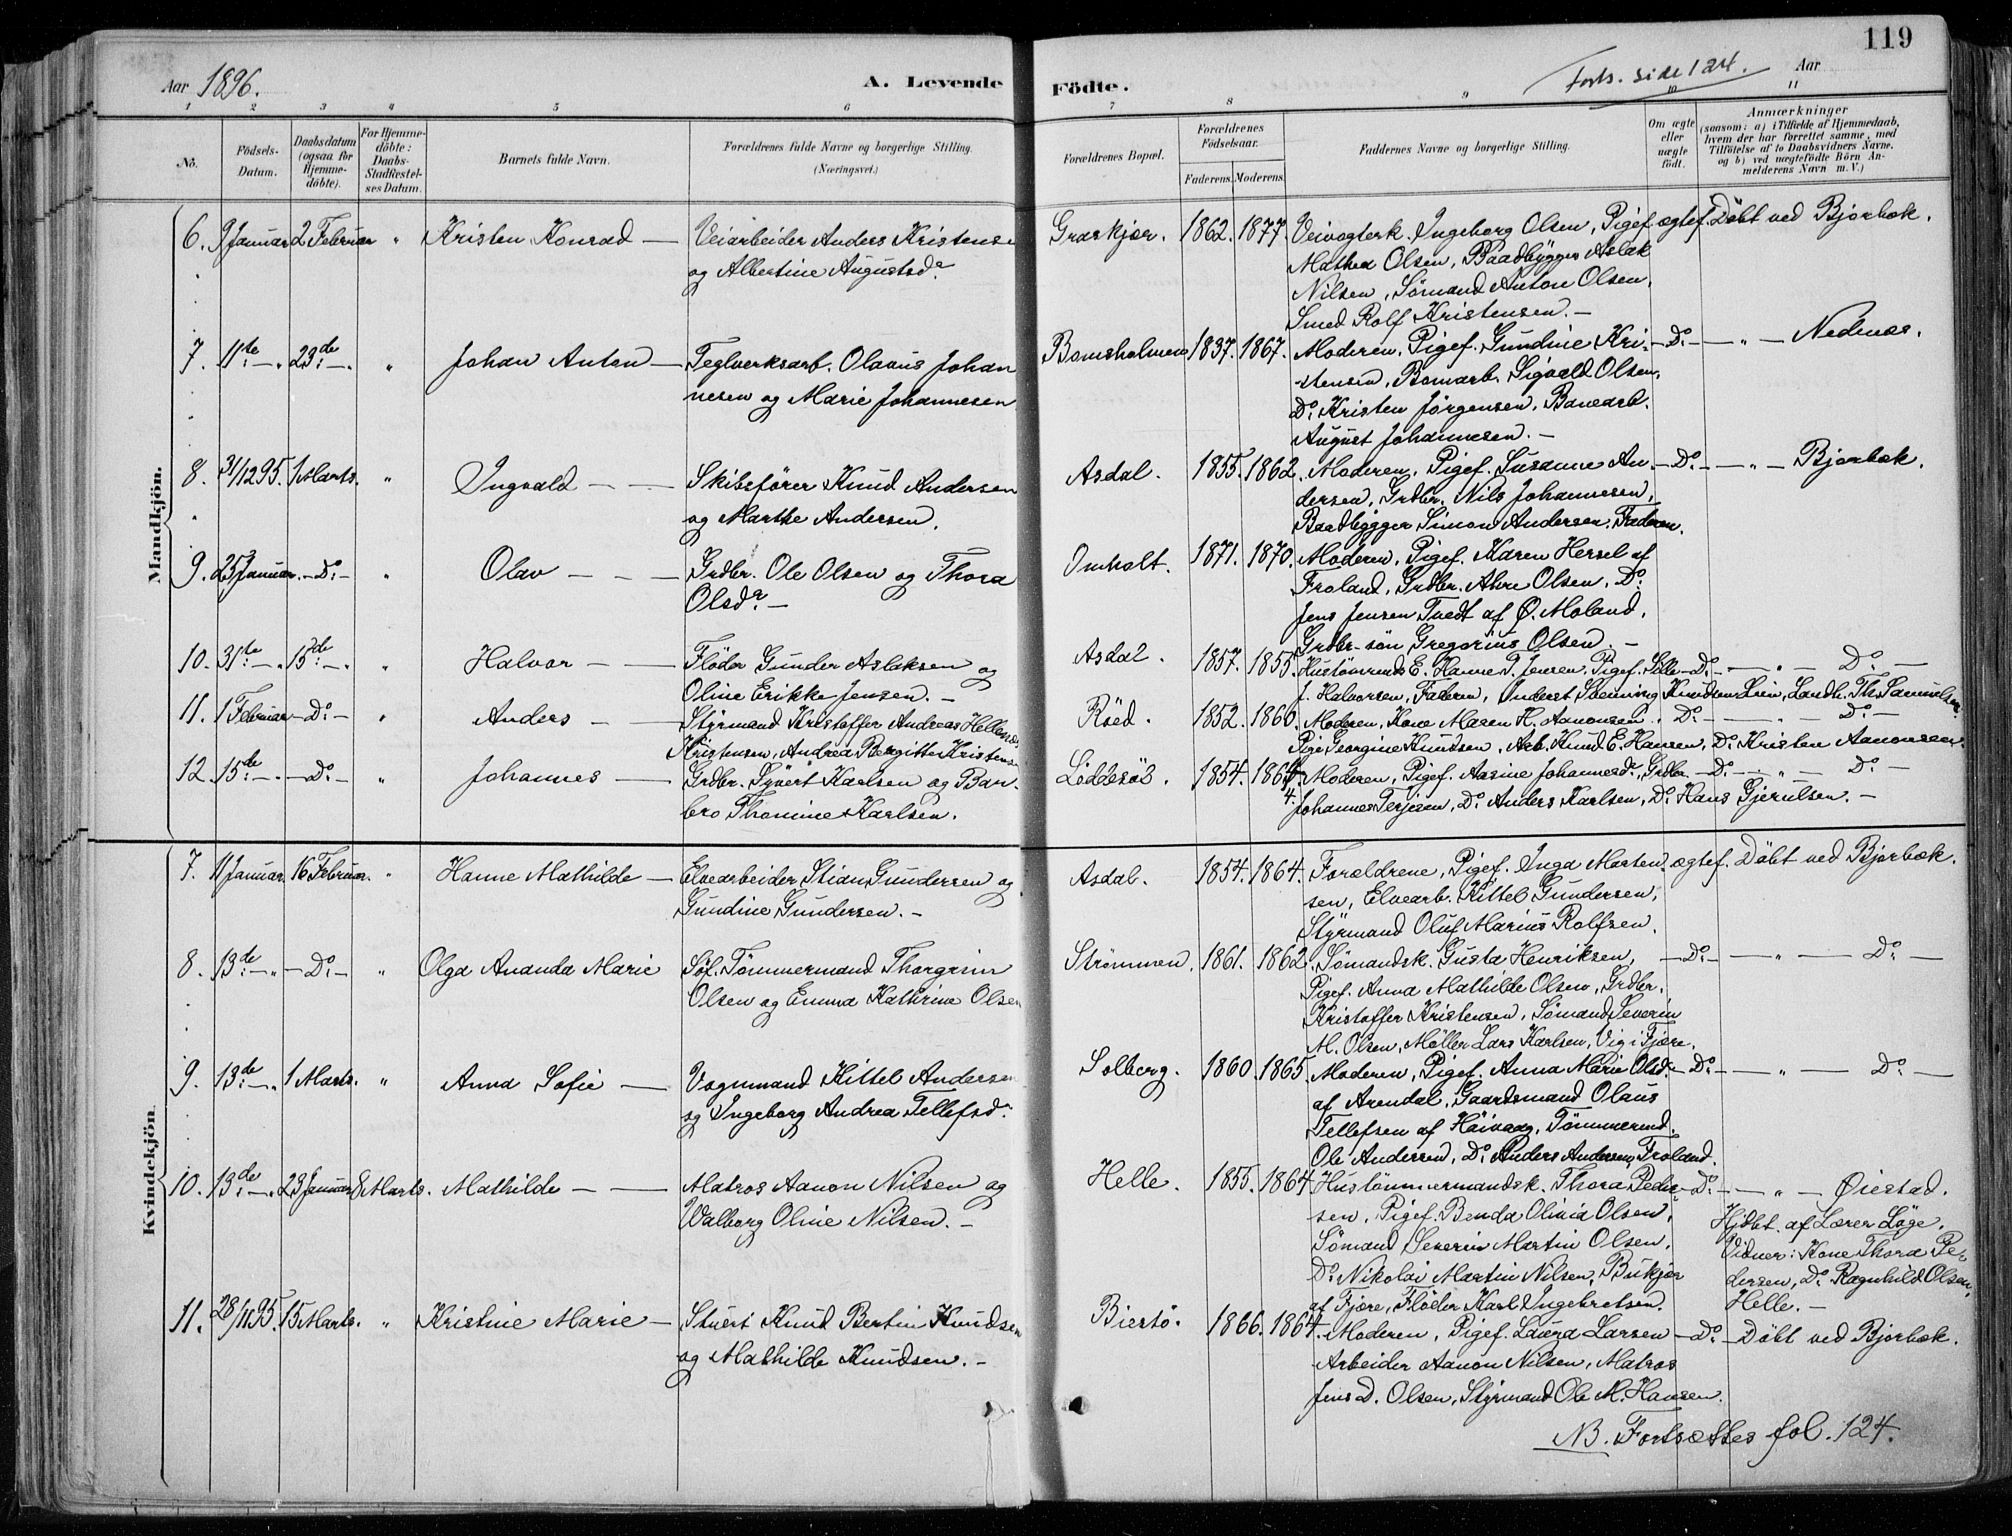 119
Aar 1896.
A. Levende Födte.
Forts. side 124.
Aar
1 2 3 4 5 6 7 8 9 10 11
No.
Födsels-Datum.
Daabsdatum (ogsaa for Hjemme-döbte).
For Hjemme-döbte: Daabs-Stadfæstel-ses Datum.
Barnets fulde Navn.
Forældrenes fulde Navne og borgerlige Stilling. (Næringsvei.)
Forældrenes Bopæl.
Forældrenes Födselsaar.
Faderens. Moderens.
Faddernes Navne og borgerlige Stilling.
Om ægte eller uægte födt.
Anmærkninger
(saasom: a) i Tilfælde af Hjemmedaab, hvem der har forrettet samme, med Tilföielse af to Daabsvidners Navne. og b) ved uægtefödte Börn An-melderens Navn m. V.)
Mandkjön.
6. 9 Januar 2 Februar " Kristen Konrad — Veiarbeider Anders Kristense
og Albertine Augustsd.
Græskjær. 1862. 1877. Veivogterk. Ingeborg Olsen, Pigef. ægtef. Döbt ved Bjorbæk.
Mathea Olsen, Baadbygger Aslak
Nilsen, Sömand Anton Olsen,
Smed Rolf Kristensen. —
7. 11te — " 23de — " Johan Anton — Teglverksarb. Olavus Johan
nesen og Marie Johannesen
Bomsholmen 1837. 1867. Moderen, Pigef. Gundine Kri- — Do — " — Nedenæs.
stensen, Bomarb. Sigvald Olsen,
Do Kristen Jörgensen, Banearb.
August Johannesen. —
8. 31/12 95. 1 Marts. " Ingvald — — Skibsförer Knud Andersen
og Marthe Andersen.
Asdal. 1855. 1862. Moderen, Pigef. Susanne An- — Do — " — Bjorbæk.
dersen, Grdbr. Nils Johannesen,
Baadbygger Simon Andersen, Faderen.
9. 25 Januar. — Do — " Olav — — — Grdbr. Ole Olsen og Thora
Olsd. —
Omholt. 1871. 1870. Moderen, Pigef. Karen Hersel af
Froland, Grdbr. Ahre Olsen, Do
Jens Jensen Tvedt af Ö. Moland,
Grdbr. sön Gregorius Olsen. —
10. 31te — " 15de — " Halvor — — Flöder Gunder Aslaksen og
Oline Erikke Jensen. —
Asdal. 1857. 1855. Hustömrmds E. Hanne J. Jensen, Pigef. — Do — " — Do —
J. Halvorsen, Faderen, Knudsen Lien, Landh. Th. Samuelsen.
11. 1 Februar — Do — " Anders — — Styrmand Kristoffer Andreas
Kristensen, Andrea Bergitte Kristens
Röed. 1852. 1860. Moderen, Kone Maren K. Aanonsen. Do — — " — Do —
Pige Georgine Knudsen, Arb. Knud E. Hansen, Do Kristen Aanonsen.
12. 15de — " — Do — " Johannes — Grdbr. Syvert Karlsen og Bar-
bro Thomine Karlsen.
Löddesöl. 1854. 1864. Moderen, Pigef. Aasine Johannesd., Grdbr. — Do — " — Do —
Johannes Terjesen, Do Anders Karlsen, Do Hans Gjerulsen. —
Kvindekjön.
7. 11 Januar. 16 Februar. " Hanne Mathilde — Elvearbeider Stian Gundersen og
Gundine Gundersen. —
Asdal. 1854. 1864. Forældrene, Pigef. Inga Marten- ægtef. Döbt ved Bjorbæk.
sen, Elvearb. Kittel Gundersen,
Styrmand Oluf Marius Rolfsen.
8. 13de — " — Do — " Olga Ananda Marie Söf. Tömmermand Thorgrim
Olsen og Emma Kathrine Olsen
Strömmen. 1861. 1862. Sömandsk. Gusta Henriksen, — Do — " — Do —
Pigef. Anna Mathilde Olsen, Grdbr.
Kristoffer Kristensen, Sömand Severin
M. Olsen, Möller Lars Karlsen, Vig i Fjære.
9. 13de — " 1 Marts. " Anna Sofie — Vognmand Kittel Andersen
og Ingeborg Andrea Tellefsd.
Solberg. 1860. 1865. Moderen, Pigef. Anna Marie Olsd. — Do — " — Do —
af Arendal, Gaardsmand Olaus
Tellefsen af Höivaag, Tömmermd.
Ole Andersen, Do Anders Andersen, Froland.
10. 13de — " 23 Januar 8 Marts. Mathilde — — Matros Aanon Nilsen og
Walborg Oline Nilsen. —
Helle. 1855. 1864. Hustömmermandsk. Thora Peder- — Do — " — Öiestad.
sen, Pigef. Benda Olivia Olsen,
Sömand Severin Martin Olsen,
Do Nikolai Martin Nilsen, Bukjær
af Fjære, Flöder Karl Ingebretsen.
Hjdbt. af Lærer Löge.
Vidner: Kone Thora Pe-
dersen, Do Ragnhild Olsen,
Helle. —
11. 28/11 95. 15 Marts. " Kristine Marie — Stuert Knud Bertin Knudsen
og Mathilde Knudsen. —
Biestö. 1866. 1864. Moderen, Pigef. Laura Larsen — Do — Döbt ved Bjorbæk.
Arbeider Aanon Nilsen, Matros
Jens D. Olsen, Styrmand Ole M. Hansen.
NB. Fortsættes fol. 124.